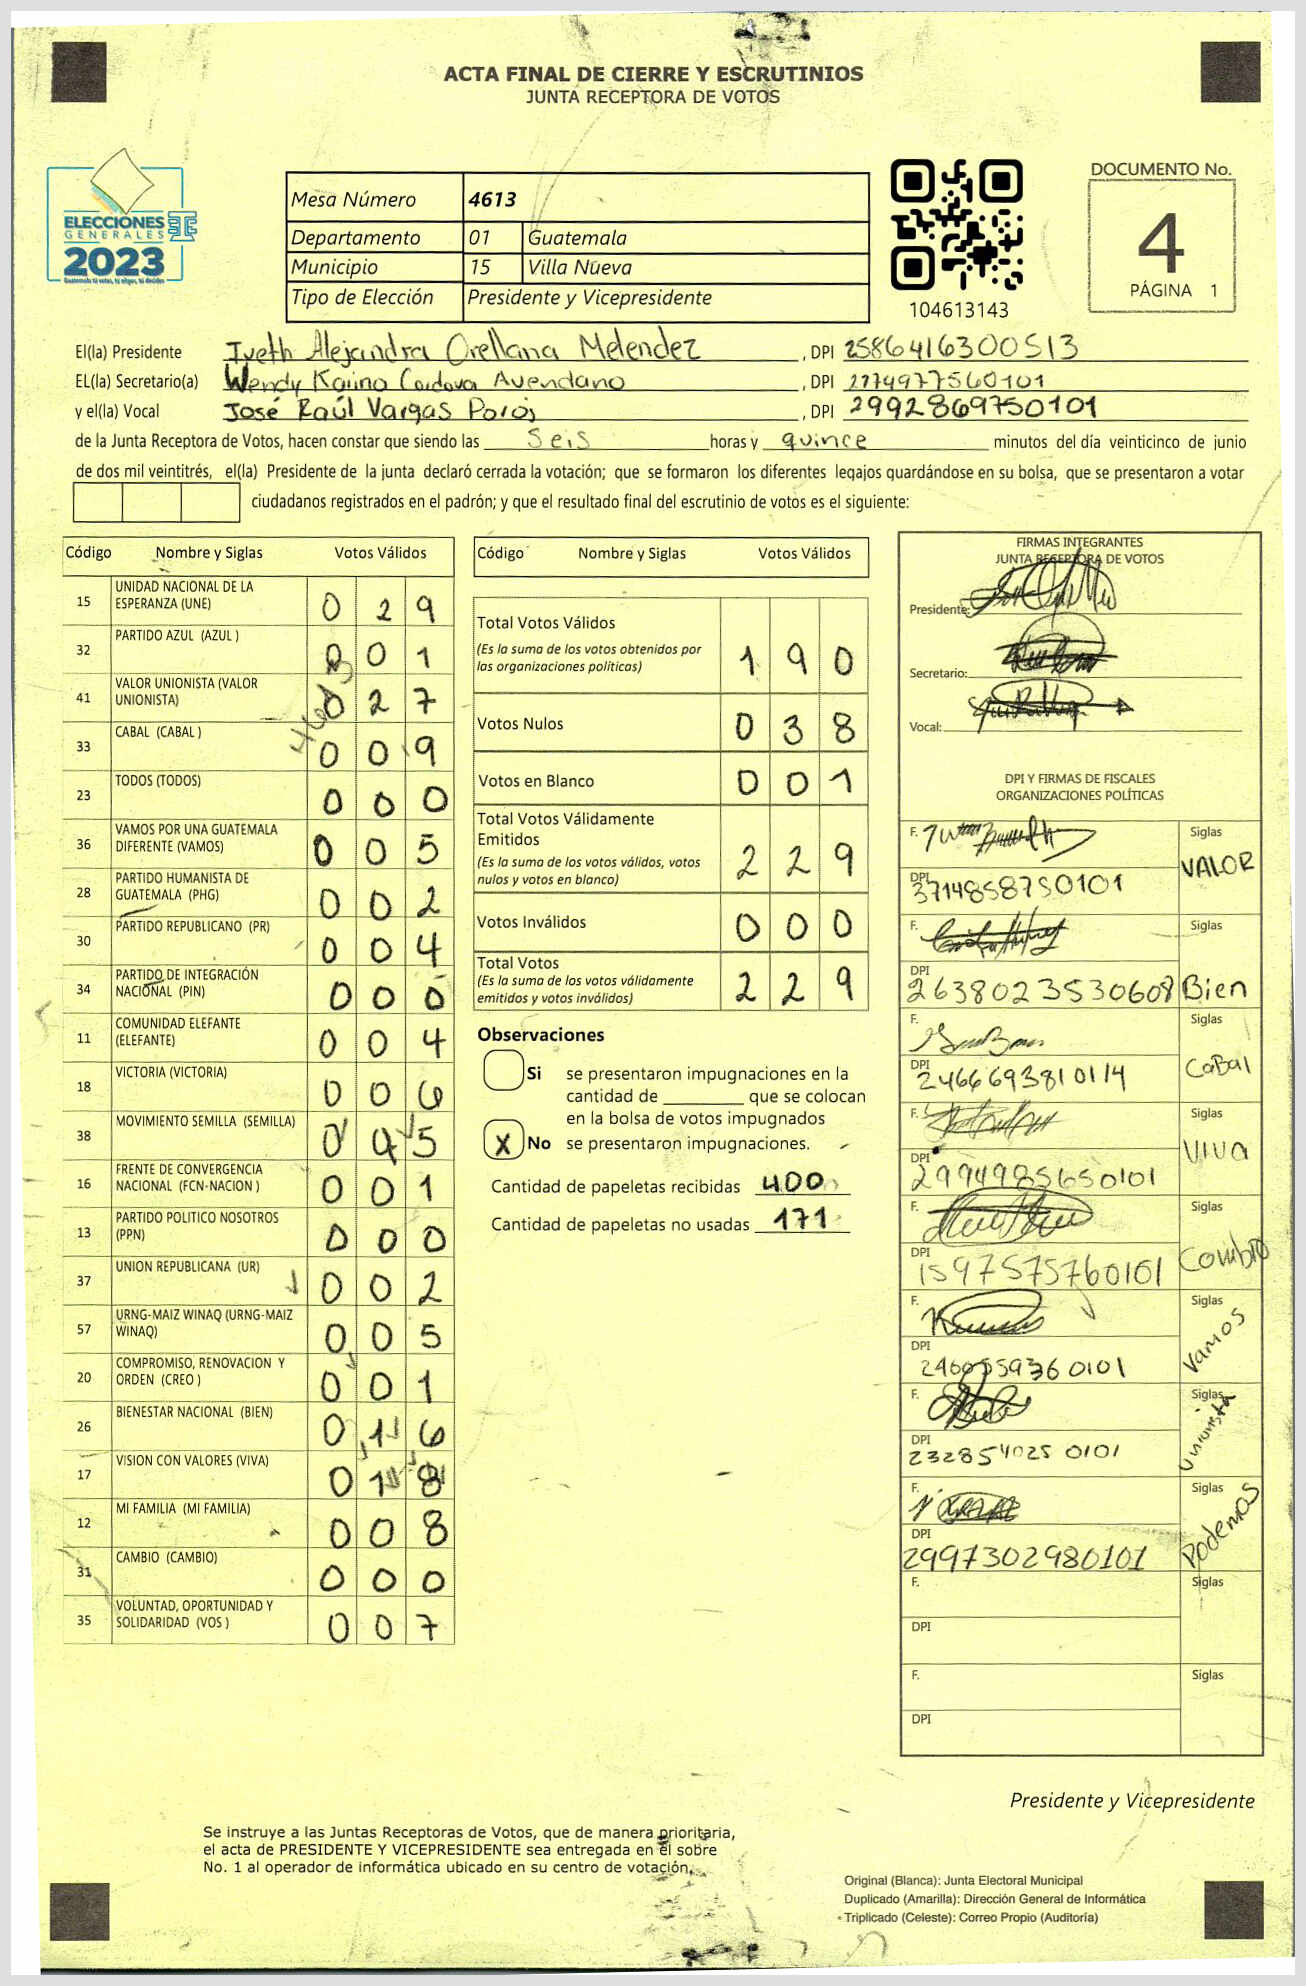 ACTA FINAL DE CIERRE Y ESCRUTINIOS
JUNTA RECEPTORA DE VOTOS
ELECCIONES
GENERALES
2023
Mesa Número 4613
Departamento 01 Guatemala
Municipio 15 Villa Nueva
Tipo de Elección Presidente y Vicepresidente
104613143
DOCUMENTO No.
4
PÁGINA 1
El(la) Presidente Iveth Alejandra Orellana Melendez , DPI 2586416300513
EL(la) Secretario(a) Wendy Karina Cordova Avendano , DPI 2774977560101
y el(la) Vocal José Raúl Vargas , DPI 2992869750101
de la Junta Receptora de Votos, hacen constar que siendo las seis horas y quince minutos del día veinticinco de junio
de dos mil veintitrés, el(la) Presidente de la junta declaró cerrada la votación; que se formaron los diferentes legajos guardándose en su bolsa, que se presentaron a votar
ciudadanos registrados en el padrón; y que el resultado final del escrutinio de votos es el siguiente:
Código Nombre y Siglas Votos Válidos
15 UNIDAD NACIONAL DE LA ESPERANZA (UNE) 0 2 9
32 PARTIDO AZUL (AZUL ) 0 0 1
41 VALOR UNIONISTA (VALOR UNIONISTA) 0 2 7
4613
33 CABAL (CABAL ) 0 0 9
23 TODOS (TODOS) 0 0 0
36 VAMOS POR UNA GUATEMALA DIFERENTE (VAMOS) 0 0 5
28 PARTIDO HUMANISTA DE GUATEMALA (PHG) 0 0 2
30 PARTIDO REPUBLICANO (PR) 0 0 4
34 PARTIDO DE INTEGRACIÓN NACIONAL (PIN) 0 0 0
11 COMUNIDAD ELEFANTE (ELEFANTE) 0 0 4
18 VICTORIA (VICTORIA) 0 0 6
38 MOVIMIENTO SEMILLA (SEMILLA) 0 4 5
16 FRENTE DE CONVERGENCIA NACIONAL (FCN-NACION ) 0 0 1
13 PARTIDO POLITICO NOSOTROS (PPN) 0 0 0
37 UNION REPUBLICANA (UR) 0 0 2
57 URNG-MAIZ WINAQ (URNG-MAIZ WINAQ) 0 0 5
20 COMPROMISO, RENOVACION Y ORDEN (CREO ) 0 0 1
26 BIENESTAR NACIONAL (BIEN) 0 1 6
17 VISION CON VALORES (VIVA) 0 1 8
12 MI FAMILIA (MI FAMILIA) 0 0 8
31 CAMBIO (CAMBIO) 0 0 0
35 VOLUNTAD, OPORTUNIDAD Y SOLIDARIDAD (VOS ) 0 0 7
Código Nombre y Siglas Votos Válidos
Total Votos Válidos 1 9 0
(Es la suma de los votos obtenidos por
las organizaciones políticas)
Votos Nulos 0 3 8
Votos en Blanco 0 0 1
Total Votos Válidamente
Emitidos 2 2 9
(Es la suma de los votos válidos, votos
nulos y votos en blanco)
Votos Inválidos 0 0 0
Total Votos 2 2 9
(Es la suma de los votos válidamente
emitidos y votos inválidos)
Observaciones
Si se presentaron impugnaciones en la
cantidad de ________ que se colocan
en la bolsa de votos impugnados
X No se presentaron impugnaciones.
Cantidad de papeletas recibidas 400
Cantidad de papeletas no usadas 171
FIRMAS INTEGRANTES
JUNTA RECEPTORA DE VOTOS
Presidente:
Secretario:
Vocal:
DPI Y FIRMAS DE FISCALES
ORGANIZACIONES POLÍTICAS
F. Siglas
VALOR
DPI 3714858750101
F. Siglas
DPI 2638023530608 Bien
F. Siglas
CaBal
DPI 2466693810114
F. Siglas
VIVA
DPI 2994985650101
F. Siglas
Cambio
DPI 1597575760101
F. Siglas
Vamos
DPI
F. Siglas
Unionista
DPI 2328540250101
F. Siglas
Podemos
DPI 2997302980101
F. Siglas
DPI
F. Siglas
DPI
Presidente y Vicepresidente
Se instruye a las Juntas Receptoras de Votos, que de manera prioritaria,
el acta de PRESIDENTE Y VICEPRESIDENTE sea entregada en el sobre
No. 1 al operador de informática ubicado en su centro de votación.
Original (Blanca): Junta Electoral Municipal
Duplicado (Amarilla): Dirección General de Informática
Triplicado (Celeste): Correo Propio (Auditoría)